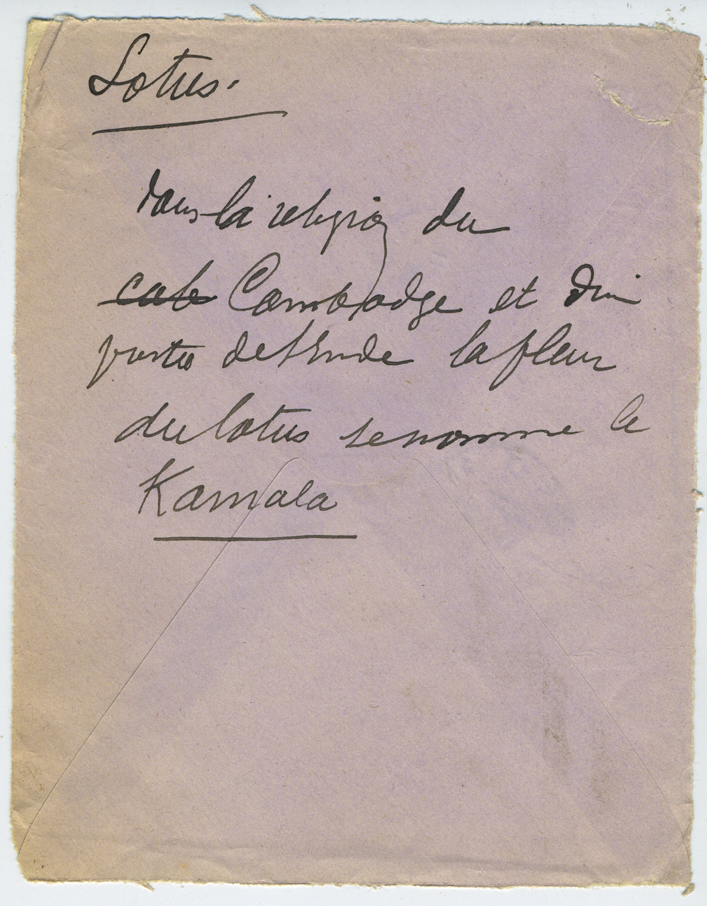 Lotus.
dans la religion du
cab Cambodge et d'un
partie de l'Inde la fleur
du lotus se nomme le
Kamala